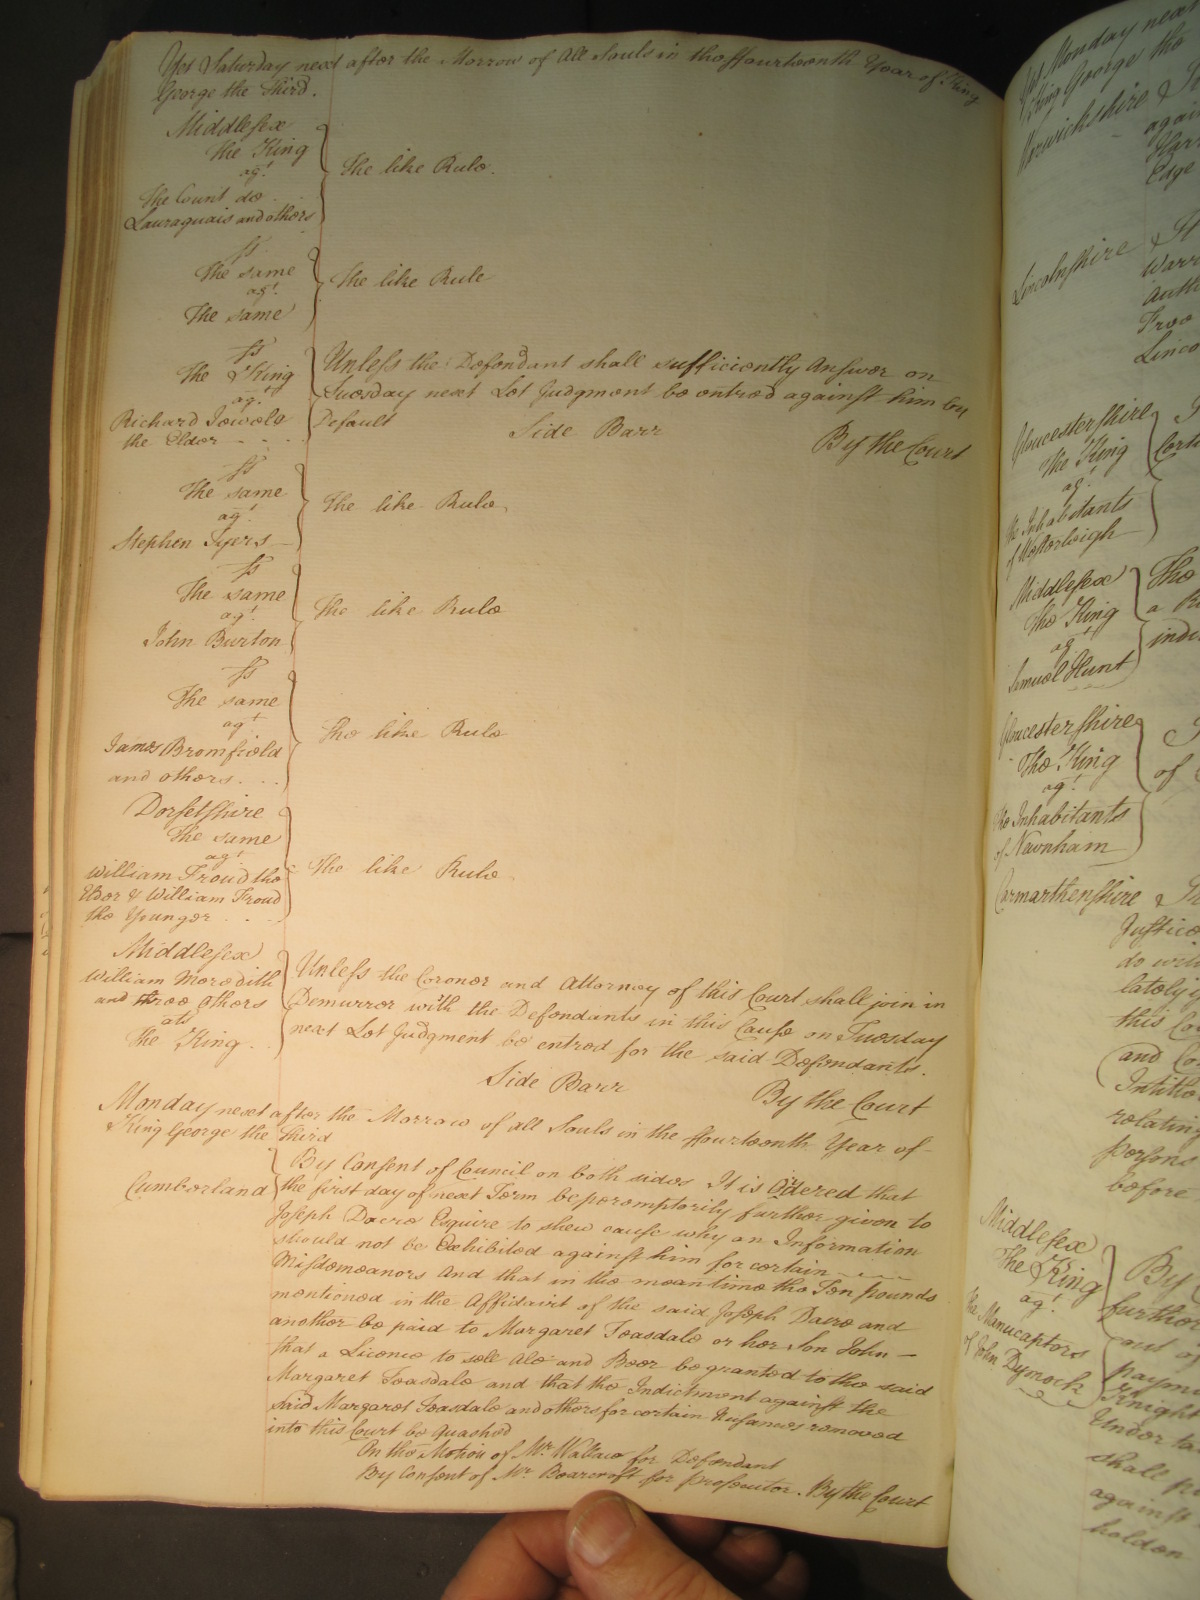 Yet Saturday next after the Morrow of All Souls in the ffourteenth Year of King
George the Third.
Middlesex
The King
agt.
The Count de
Lauraguais and others
The like Rule.
ss
The same
agt.
The same
The like Rule
ss
The King
agt.
Richard Jewele
the Elder
Unless the Defendant shall sufficiently Answer on
Tuesday next Let Judgment be entred against him by
Default
Side Barr
By the Court
ss
The same
agt.
Stephen Tyers
The like Rule
ss
The same
agt.
John Burton
The like Rule
ss
The same
agt
James Bromfield
and others
The like Rule
Dorsetshire
The same
agt.
William Froud the
Elder & William Froud
the Younger
The like Rule
Middlesex
William Meredith
and three others
ats
The King.
Unless the Coroner and Attorney of this Court shall join in
Demurrer with the Defendants in this Cause on Tuesday
next Let Judgment be entred for the said Defendants.
Side Barr
By the Court
Monday next after the Morrow of all Souls in the ffourteenth Year of
King George the Third
Cumberland
By Consent of Council on both sides It is Odered that
the first day of next Term be peremptorily further given to
Joseph Dacre Esquire to shew cause why an Information
should not be Exhibited against him for certain
Misdemeanors And that in the mean time the Ten pounds
mentioned in the Affidavit of the said Joseph Dacre and
another be paid to Margaret Teasdale or her Son John
that a Licence to sell Ale and Beer be granted to the said
Margaret Teasdale and that the Indictment against the
said Margaret Teasdale and others for certain Nusances removed
into this Court be quashed
On the Motion of Mr. Wallace for Defendant
By Consent of Mr. Bearcroft for prosecutor. By the Court
Yet Monday next
King George the
Warwickshire
again
Edge
Lincolnshire
It
Warr
Auth
Free
Linco
Gloucestershire
The King
agt.
The Inhabitants
of Westerleigh
Middlesex
The King
agt
Samuel Hunt
The
a R
indi
Gloucestershire
The King
agt.
The Inhabitants
of Newnham
of
Carmarthenshire
Th
Justice
do with
lately
this Co
and Co
Intitle
relating
persons
before
Middlesex
The King
agt.
The Manucaptors
of John Dymock
By
further
out of
payme
Knight
Under ta
shall p
against
holden